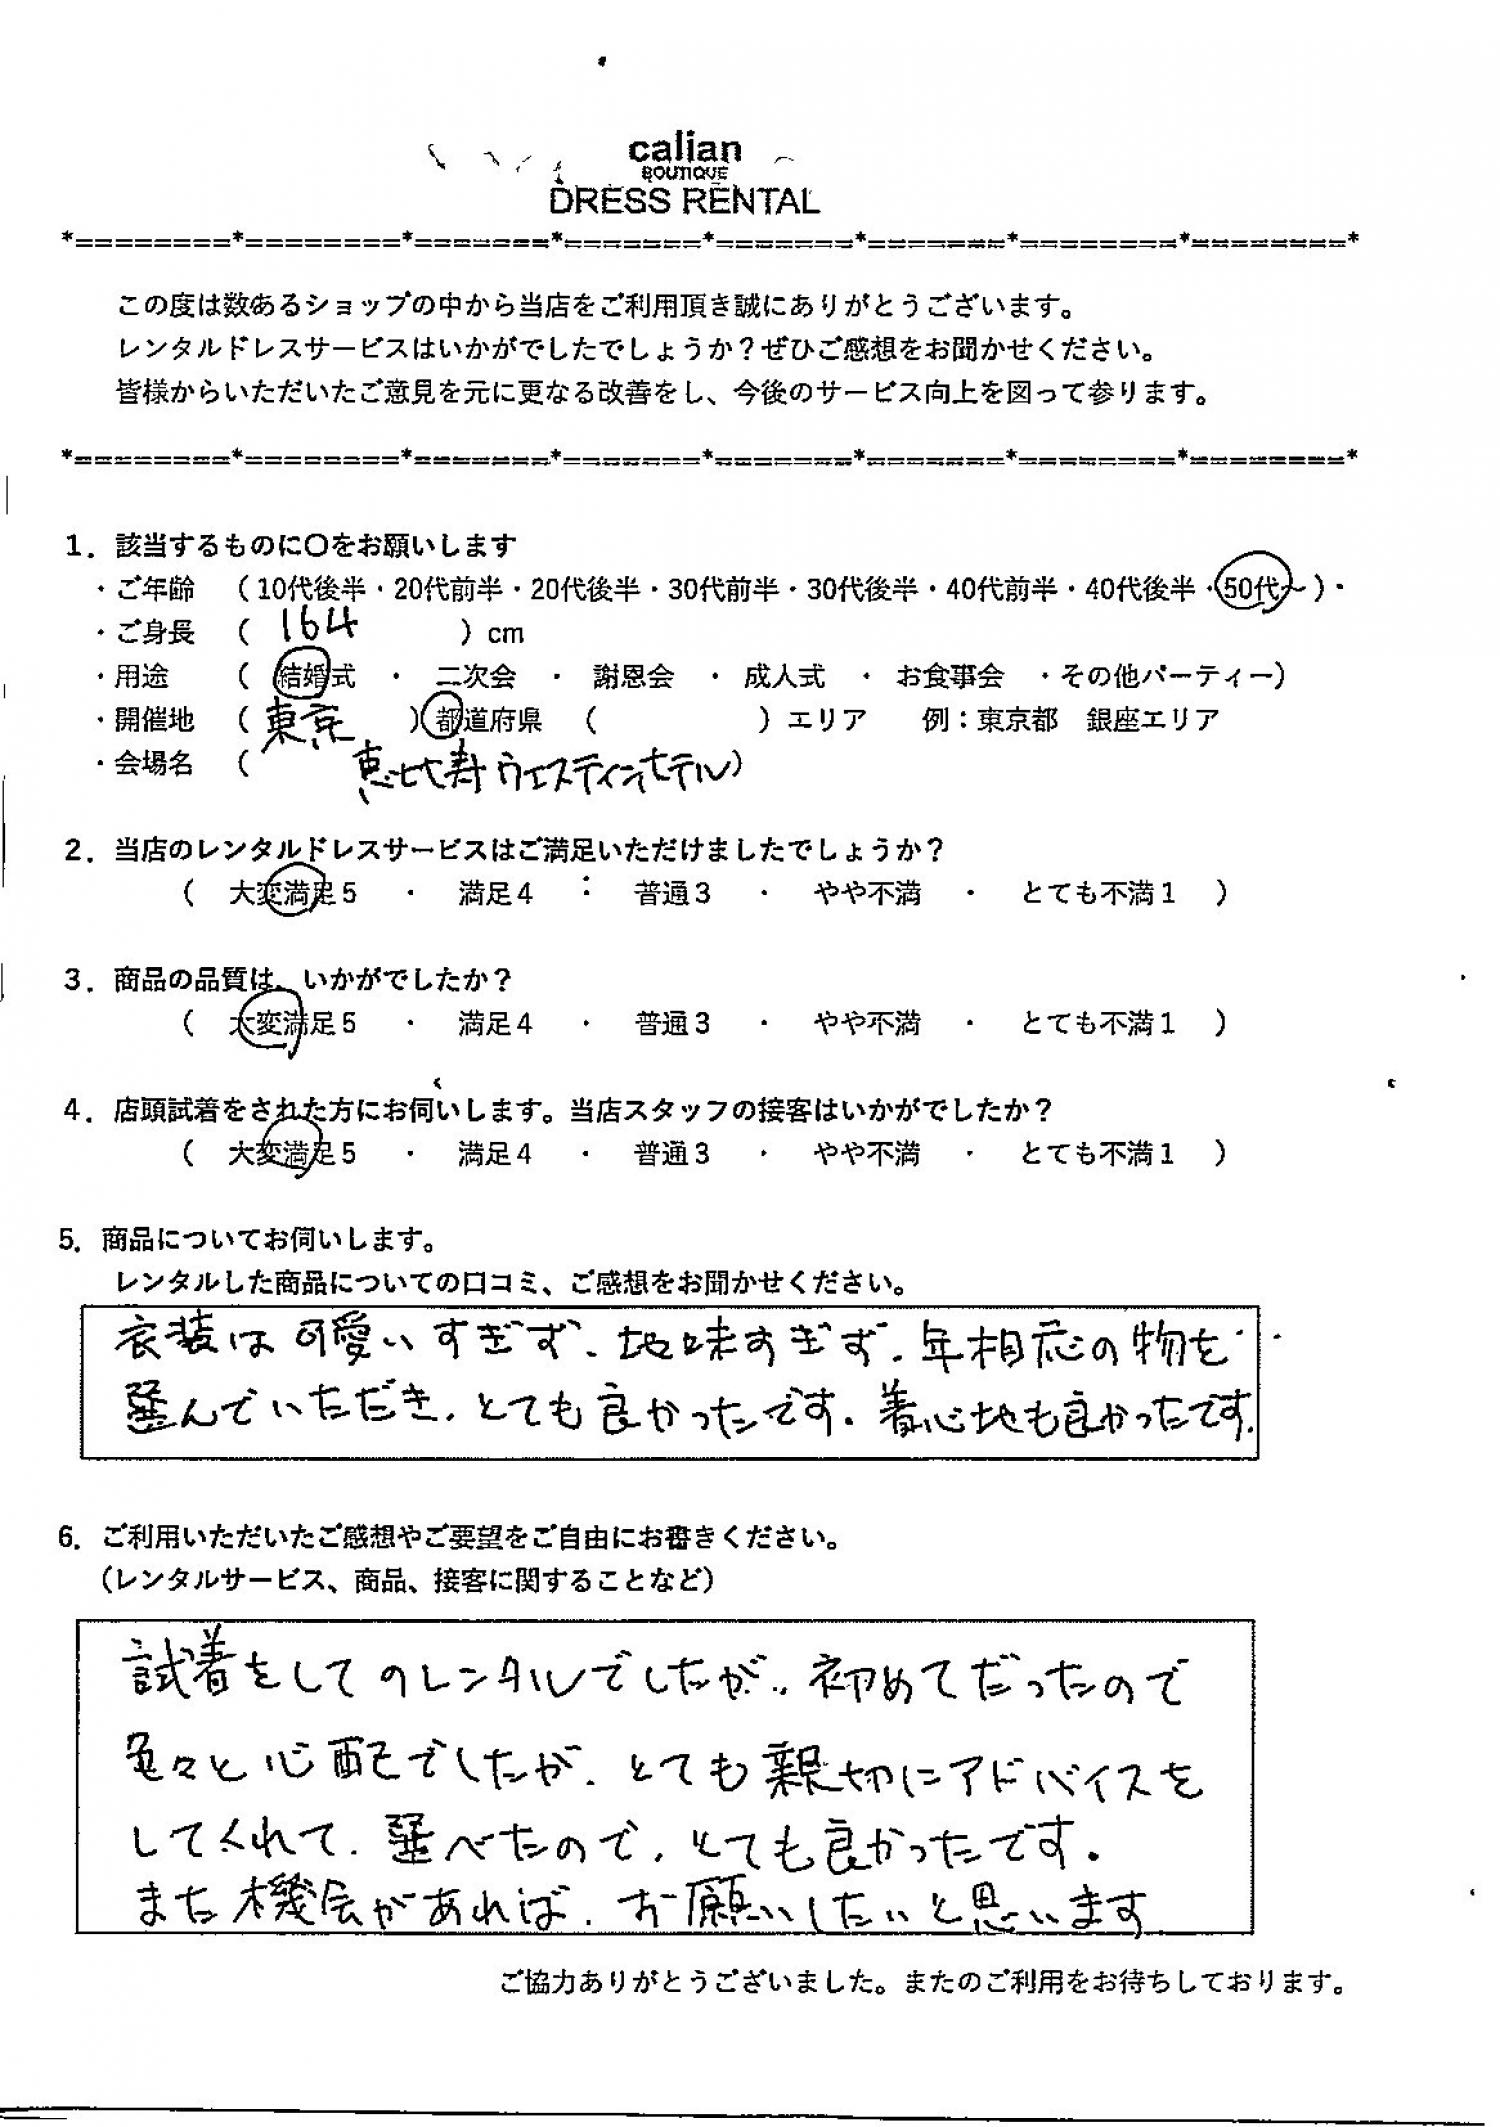 calian
BOUTIQUE
DRESS RENTAL
*========*========*=======*=======*=======*=======*========*========*
この度は数あるショップの中から当店をご利用頂き誠にありがとうございます。
レンタルドレスサービスはいかがでしたでしょうか？ぜひご感想をお聞かせください。
皆様からいただいたご意見を元に更なる改善をし、今後のサービス向上を図って参ります。
*========*========*=======*=======*=======*=======*========*========*
1．該当するものに〇をお願いします
・ご年齢 （10代後半・20代前半・20代後半・30代前半・30代後半・40代前半・40代後半・50代～）・
・ご身長 （ 164 ）cm
・用途 （ 結婚式 ・ 二次会 ・ 謝恩会 ・ 成人式 ・ お食事会 ・その他パーティー）
・開催地 （ 東京 ）都道府県 （ ）エリア 例：東京都 銀座エリア
・会場名 （ 恵比寿ウェスティンホテル）
2．当店のレンタルドレスサービスはご満足いただけましたでしょうか？
（ 大変満足5 ・ 満足4 ・ 普通3 ・ やや不満 ・ とても不満1 ）
3．商品の品質は、いかがでしたか？
（ 大変満足5 ・ 満足4 ・ 普通3 ・ やや不満 ・ とても不満1 ）
4．店頭試着をされた方にお伺いします。当店スタッフの接客はいかがでしたか？
（ 大変満足5 ・ 満足4 ・ 普通3 ・ やや不満 ・ とても不満1 ）
5．商品についてお伺いします。
レンタルした商品についての口コミ、ご感想をお聞かせください。
衣装は可愛いすぎず、地味すぎず、年相応の物を
選んでいただき、とても良かったです。着心地も良かったです。
6．ご利用いただいたご感想やご要望をご自由にお書きください。
（レンタルサービス、商品、接客に関することなど）
試着をしてのレンタルでしたが、初めてだったので
色々と心配でしたが、とても親切にアドバイスを
してくれて、選べたので、とても良かったです。
また機会があれば、お願いしたいと思います
ご協力ありがとうございました。またのご利用をお待ちしております。